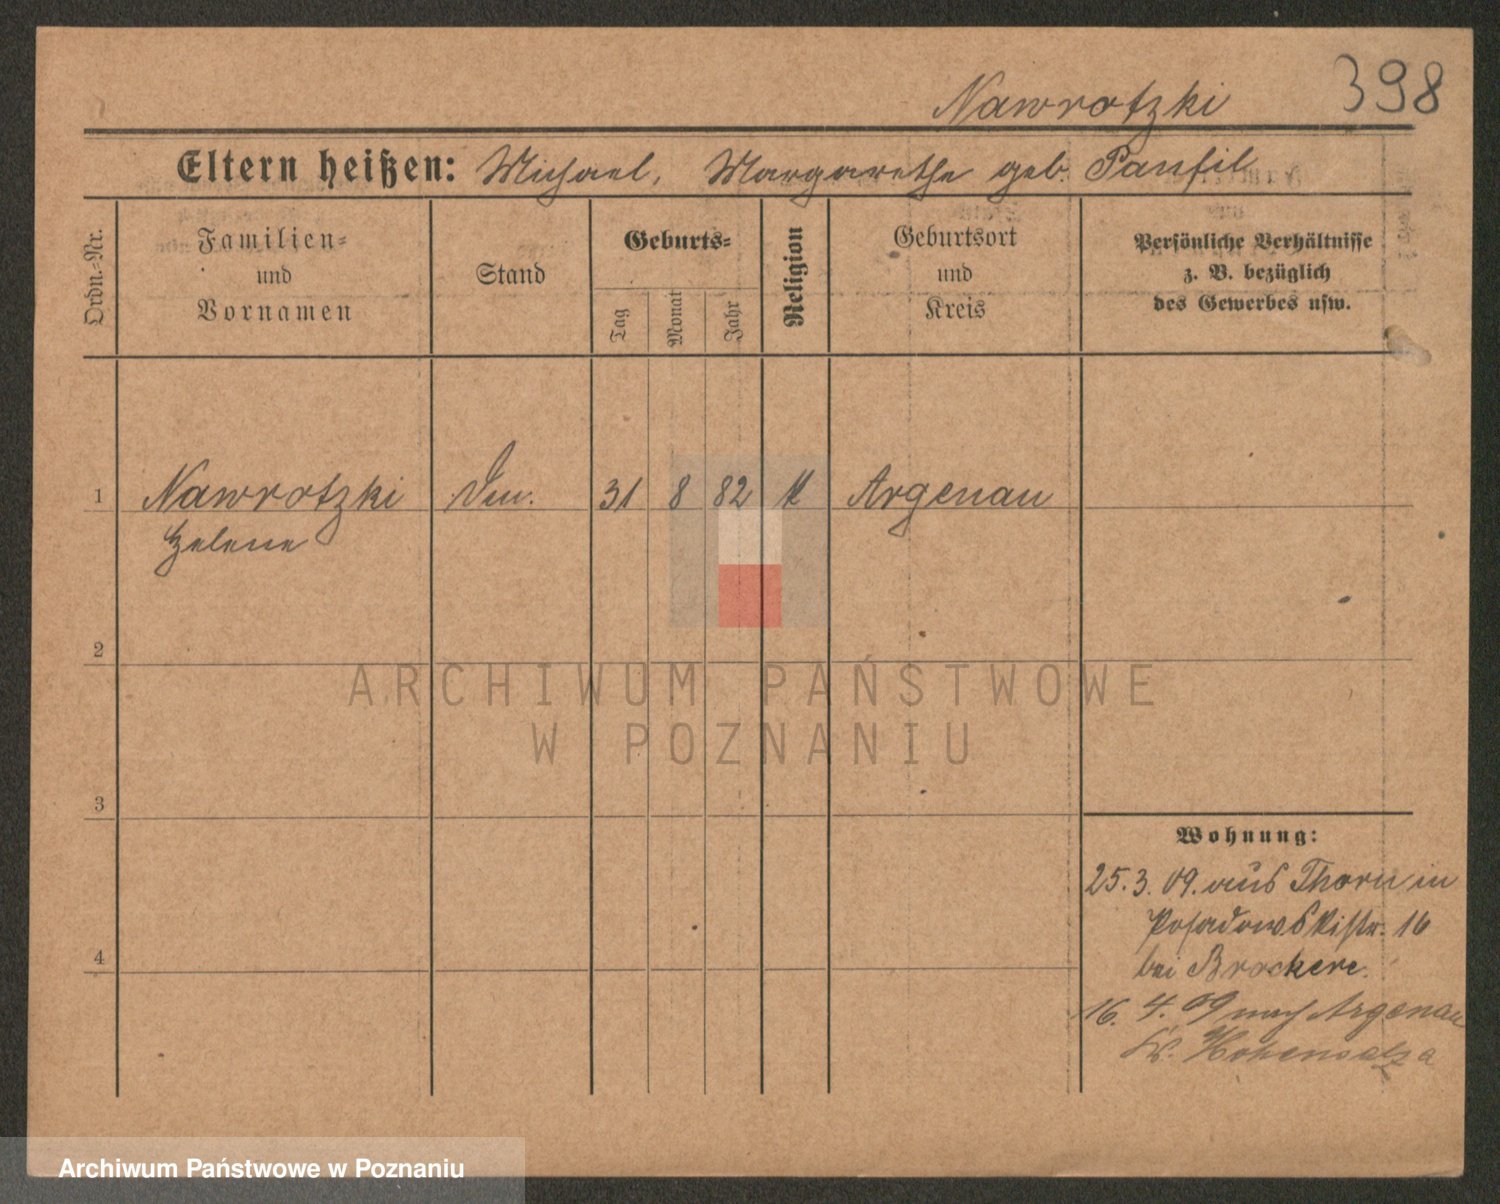 398
Nawrotzki
Eltern heißen: Michael, Margarethe geb. Panfil
Ordn.-Nr.
Familien-
und
Vornamen
Stand
Geburts-
Tag
Monat
Jahr
Religion
Geburtsort
und
Kreis
Persönliche Verhältnisse
z. B. bezüglich
des Gewerbes usw.
1 Nawrotzki 31 8 82 K Argenau
Helene
2
3
4
Wohnung:
25. 3. 09. aus Thorn in
Posadowskistr. 16
bei Brockere.
16. 4. 09 nach Argenau
Kr. Hohensalza
ARCHIWUM PAŃSTWOWE
W POZNANIU
Archiwum Państwowe w Poznaniu